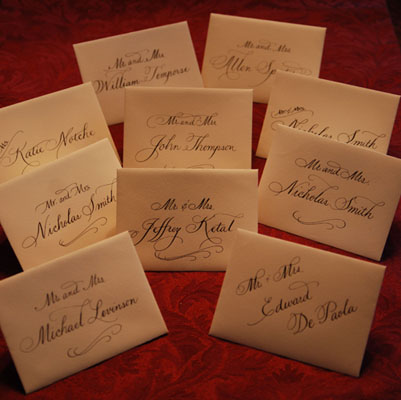 Mr. and Mrs.
William Temporse
Mr. and Mrs.
Allen
Ms.
Katie Notche
Mr. and Mrs.
John Thompson
Mr. and Mrs.
Nicholas Smith
Mr. and Mrs.
Nicholas Smith
Mr. & Mrs.
Jeffrey Ketal
Mr. and Mrs.
Nicholas Smith
Mr. and Mrs.
Michael Levenson
Mr. & Mrs.
Edward
De Paola